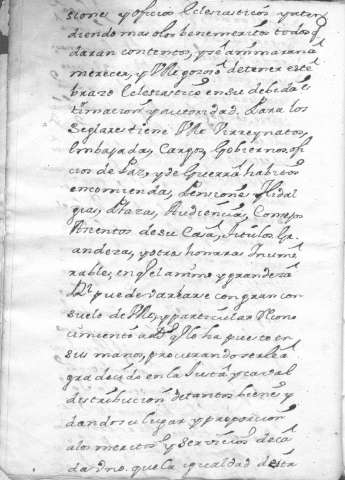 siones y oficios Eclesiasticos y aten
diendo mas a los benemeritos todos q
daran contentos, y se animaran a
merecer, y VMg gozoso de tener este
brazo Eclesiastico en su debida es
timacion y autoridad. Para los
Seglares tiene VMg Virreynatos,
Embajadas, Cargos, Gobiernos ofi
cios de Paz, y de Guerra habitos
encomiendas, Pensiones Hidal
guias, Plazas, Audiencias, Consejos
Asientos de su Casa, titulos Gr
andezas, y otras honras Innume
rables, en q el animo y grandeza
Rl puede varearse con gran con
suelo de VMg, y particular Recono
cimiento a Ds q lo ha puesto en
sus manos, procurando serle a
gradecido en la Justa y cabal
distribucion de tantos bienes y
dando su lugar y proporcion
a los meritos y servicios de ca
da uno. que la igualdad de esta